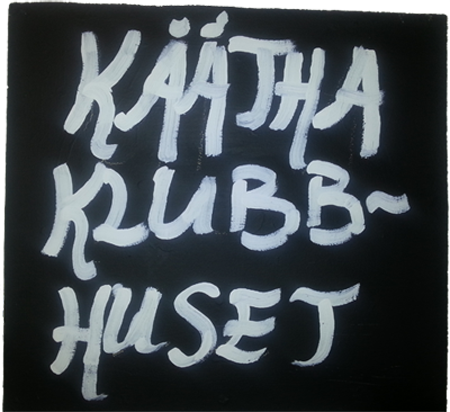 KÄÄTHA
KLUBB~
HUSET